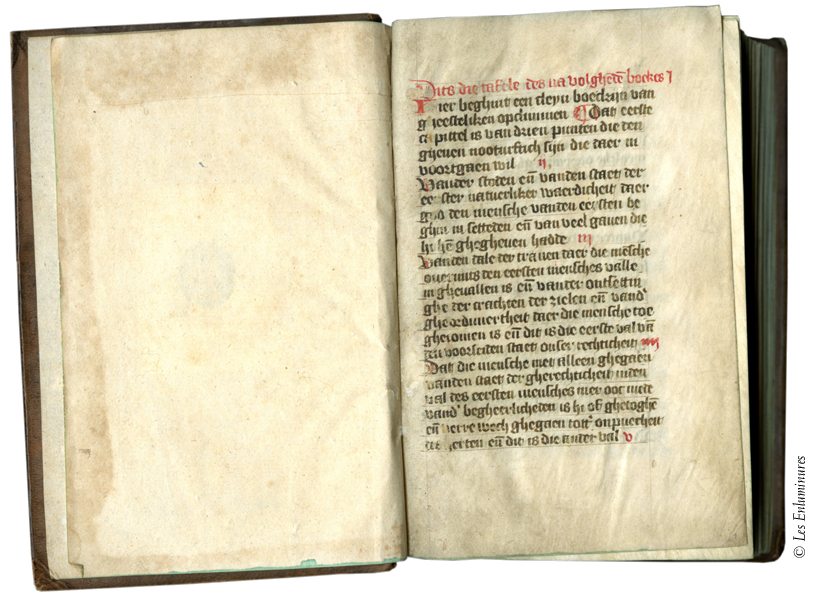 Dits die tafele des na volghedē boekes j
Hier beghint een cleyn boecxkijn van
gheesteliken opclimmen Dat eerste
capittel is van drien punten die den
ghenen nooturftich sijn die daer in
voortgaen wil ij
Vander steden eñ vanden staet der
eerster natuerliker waerdicheit daer
god den mensche vanden eersten be
ghin in settede eñ van veel gauen die
hi hē ghegheuen hadde iij
Vanden dale der tranen daer die mēsche
ouermits den eersten mensches valle
in gheuallen is eñ vander ontsettin
ghe der crachten der zielen eñ vand'
gheordineertheit daer die mensche toe
ghecomen is eñ dit is die eerste val vā
den voorseiden staet onser rechticheit iiij
Dat die mensche niet alleen ghegaen
vanden staet der gherechticheit inden
val des eersten mensches mer ooc mede
vand' begheerlicheden is hi of ghetoghē
eñ verre wech ghegaen tott' onpuerheit
der herten eñ dit is die ander val v
© Les Enluminures